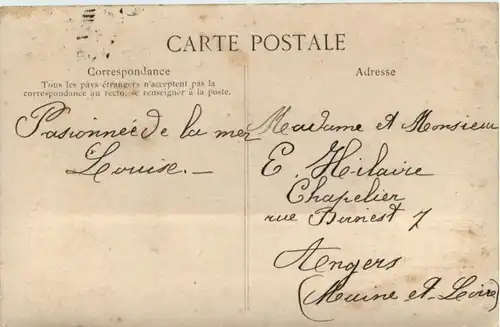 CARTE POSTALE
Correspondance
Tous les pays étrangers n'acceptent pas la
correspondance au recto, se renseigner à la poste.
Pasionnée de la mer
Louise. _
Adresse
Madame et Monsieur
E. Hilaire
Chapelier
rue 7
Angers
(Maine et-Loire)